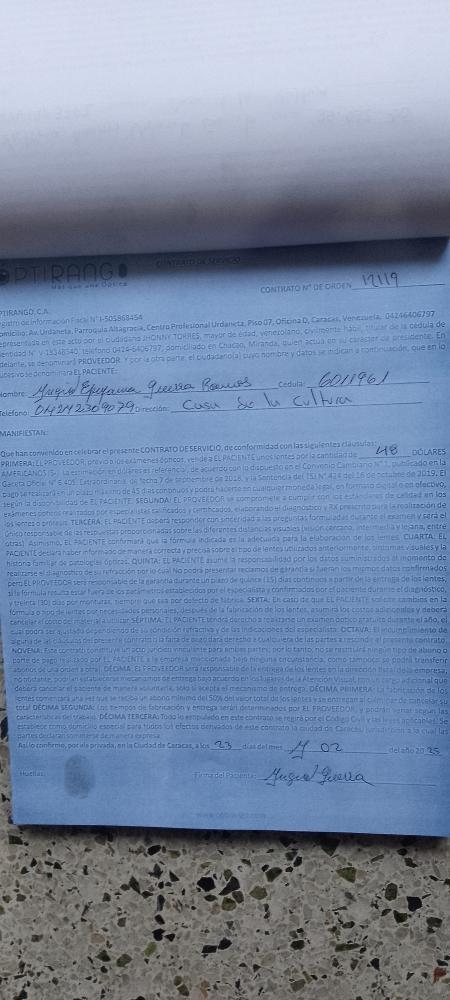 OPTIRANGO
Más que una Óptica
CONTRATO DE SERVICIO
CONTRATO N° DE ORDEN 12119
OPTIRANGO, C.A.:
Registro de Información Fiscal N° J-505868454
Domicilio: Av. Urdaneta, Parroquia Altagracia, Centro Profesional Urdaneta, Piso 07, Oficina D, Caracas, Venezuela. 04246406797
representada en este acto por el ciudadano JHONNY TORRES, mayor de edad, venezolano, civilmente hábil, titular de la cédula de
identidad N° V-18348540, teléfono 0424-6406797, domiciliado en Chacao, Miranda, quien actúa en su carácter de presidente. En
adelante, se denominará PROVEEDOR. Y por la otra parte, el ciudadano(a) cuyo nombre y datos se indican a continuación, que en lo
sucesivo se denominará EL PACIENTE:
Nombre: Guerra Ramos Cédula: 6011961
Teléfono: 04242309079 Dirección: Casa de la Cultura
MANIFIESTAN:
Que han convenido en celebrar el presente CONTRATO DE SERVICIO, de conformidad con las siguientes cláusulas:
PRIMERA: EL PROVEEDOR, previo a los exámenes ópticos, vende a EL PACIENTE unos lentes por la cantidad de 48 DÓLARES
AMERICANOS ($). La estimación en dólares es referencial, de acuerdo con lo dispuesto en el Convenio Cambiario N° 1, publicado en la
Gaceta Oficial N° 6.405 Extraordinario, de fecha 7 de septiembre de 2018, y la Sentencia del TSJ N° 424 del 16 de octubre de 2019. El
pago se realizará en un plazo máximo de 45 días continuos y podrá hacerse en cualquier moneda legal, en forma digital o en efectivo,
según la disponibilidad de EL PACIENTE. SEGUNDA: EL PROVEEDOR se compromete a cumplir con los estándares de calidad en los
exámenes ópticos realizados por especialistas calificados y certificados, elaborando el diagnóstico y RX para la realización de
los lentes o prótesis. TERCERA: EL PACIENTE deberá responder con sinceridad a las preguntas formuladas durante el examen y será el
único responsable de las respuestas proporcionadas sobre las diferentes distancias visuales (visión cercana, intermedia y lejana, entre
otras). Asimismo, EL PACIENTE confirmará que la fórmula indicada es la adecuada para la elaboración de los lentes. CUARTA: EL
PACIENTE declara haber informado de manera correcta y precisa sobre el tipo de lentes utilizados anteriormente, síntomas visuales y la
historia familiar de patologías ópticas. QUINTA: EL PACIENTE asume la responsabilidad por los datos suministrados al momento de
realizarse el diagnóstico de su refracción por lo cual No podrá presentar reclamos de garantía si fueran los mismos datos confirmados
pero EL PROVEEDOR será responsable de la garantía durante un plazo de quince (15) días continuos a partir de la entrega de los lentes,
si la fórmula resulta estar fuera de los parámetros establecidos por el especialista y confirmados por el paciente durante el diagnóstico,
y treinta (30) días por monturas, siempre que sea por defecto de fábrica. SEXTA: En caso de que EL PACIENTE solicite cambios en la
fórmula o tipo de lentes por necesidades personales, después de la fabricación de los lentes, asumirá los costos adicionales y deberá
cancelar el costo del material a utilizar. SÉPTIMA: EL PACIENTE tendrá derecho a realizarse un examen óptico gratuito durante el año, el
cual podrá ser ajustado dependiendo de su condición refractiva y de las indicaciones del especialista. OCTAVA: El incumplimiento de
alguna de las cláusulas del presente contrato o la falta de pago dará derecho a cualquiera de las partes a rescindir el presente contrato.
NOVENA: Este contrato constituye un acto jurídico vinculante para ambas partes; por lo tanto, no se realizará ningún tipo de abono o
parte de pago realizado por EL PACIENTE a la empresa mencionada bajo ninguna circunstancia, como tampoco se podrá transferir
abonos de una orden a otra. DÉCIMA: EL PROVEEDOR será responsable de la entrega de los lentes en la dirección fiscal de la empresa;
no obstante, podrían establecerse mecanismos de entrega bajo acuerdo en los lugares de la Atención Visual,
deberá cancelar el paciente de manera voluntaria, solo si acepta el mecanismo de entrega. DÉCIMA PRIMERA: La fabricación de los
lentes comenzará una vez que se reciba un abono mínimo del 50% del valor total de los lentes y se entregarán al culminar de cancelar su
total. DÉCIMA SEGUNDA: Los tiempos de fabricación y entrega serán determinados por EL PROVEEDOR, y podrán variar según las
características del trabajo. DÉCIMA TERCERA: Todo lo estipulado en este contrato se regirá por el Código Civil y las leyes aplicables. Se
establece como domicilio especial para todos los efectos derivados de este contrato la ciudad de Caracas, jurisdicción a la cual las
partes declaran someterse de manera expresa.
Así lo confirmo, por vía privada, en la Ciudad de Caracas, a los 23 días del mes 02 del año 2025
Huellas: Firma del Paciente: Guerra
www.optirango.com